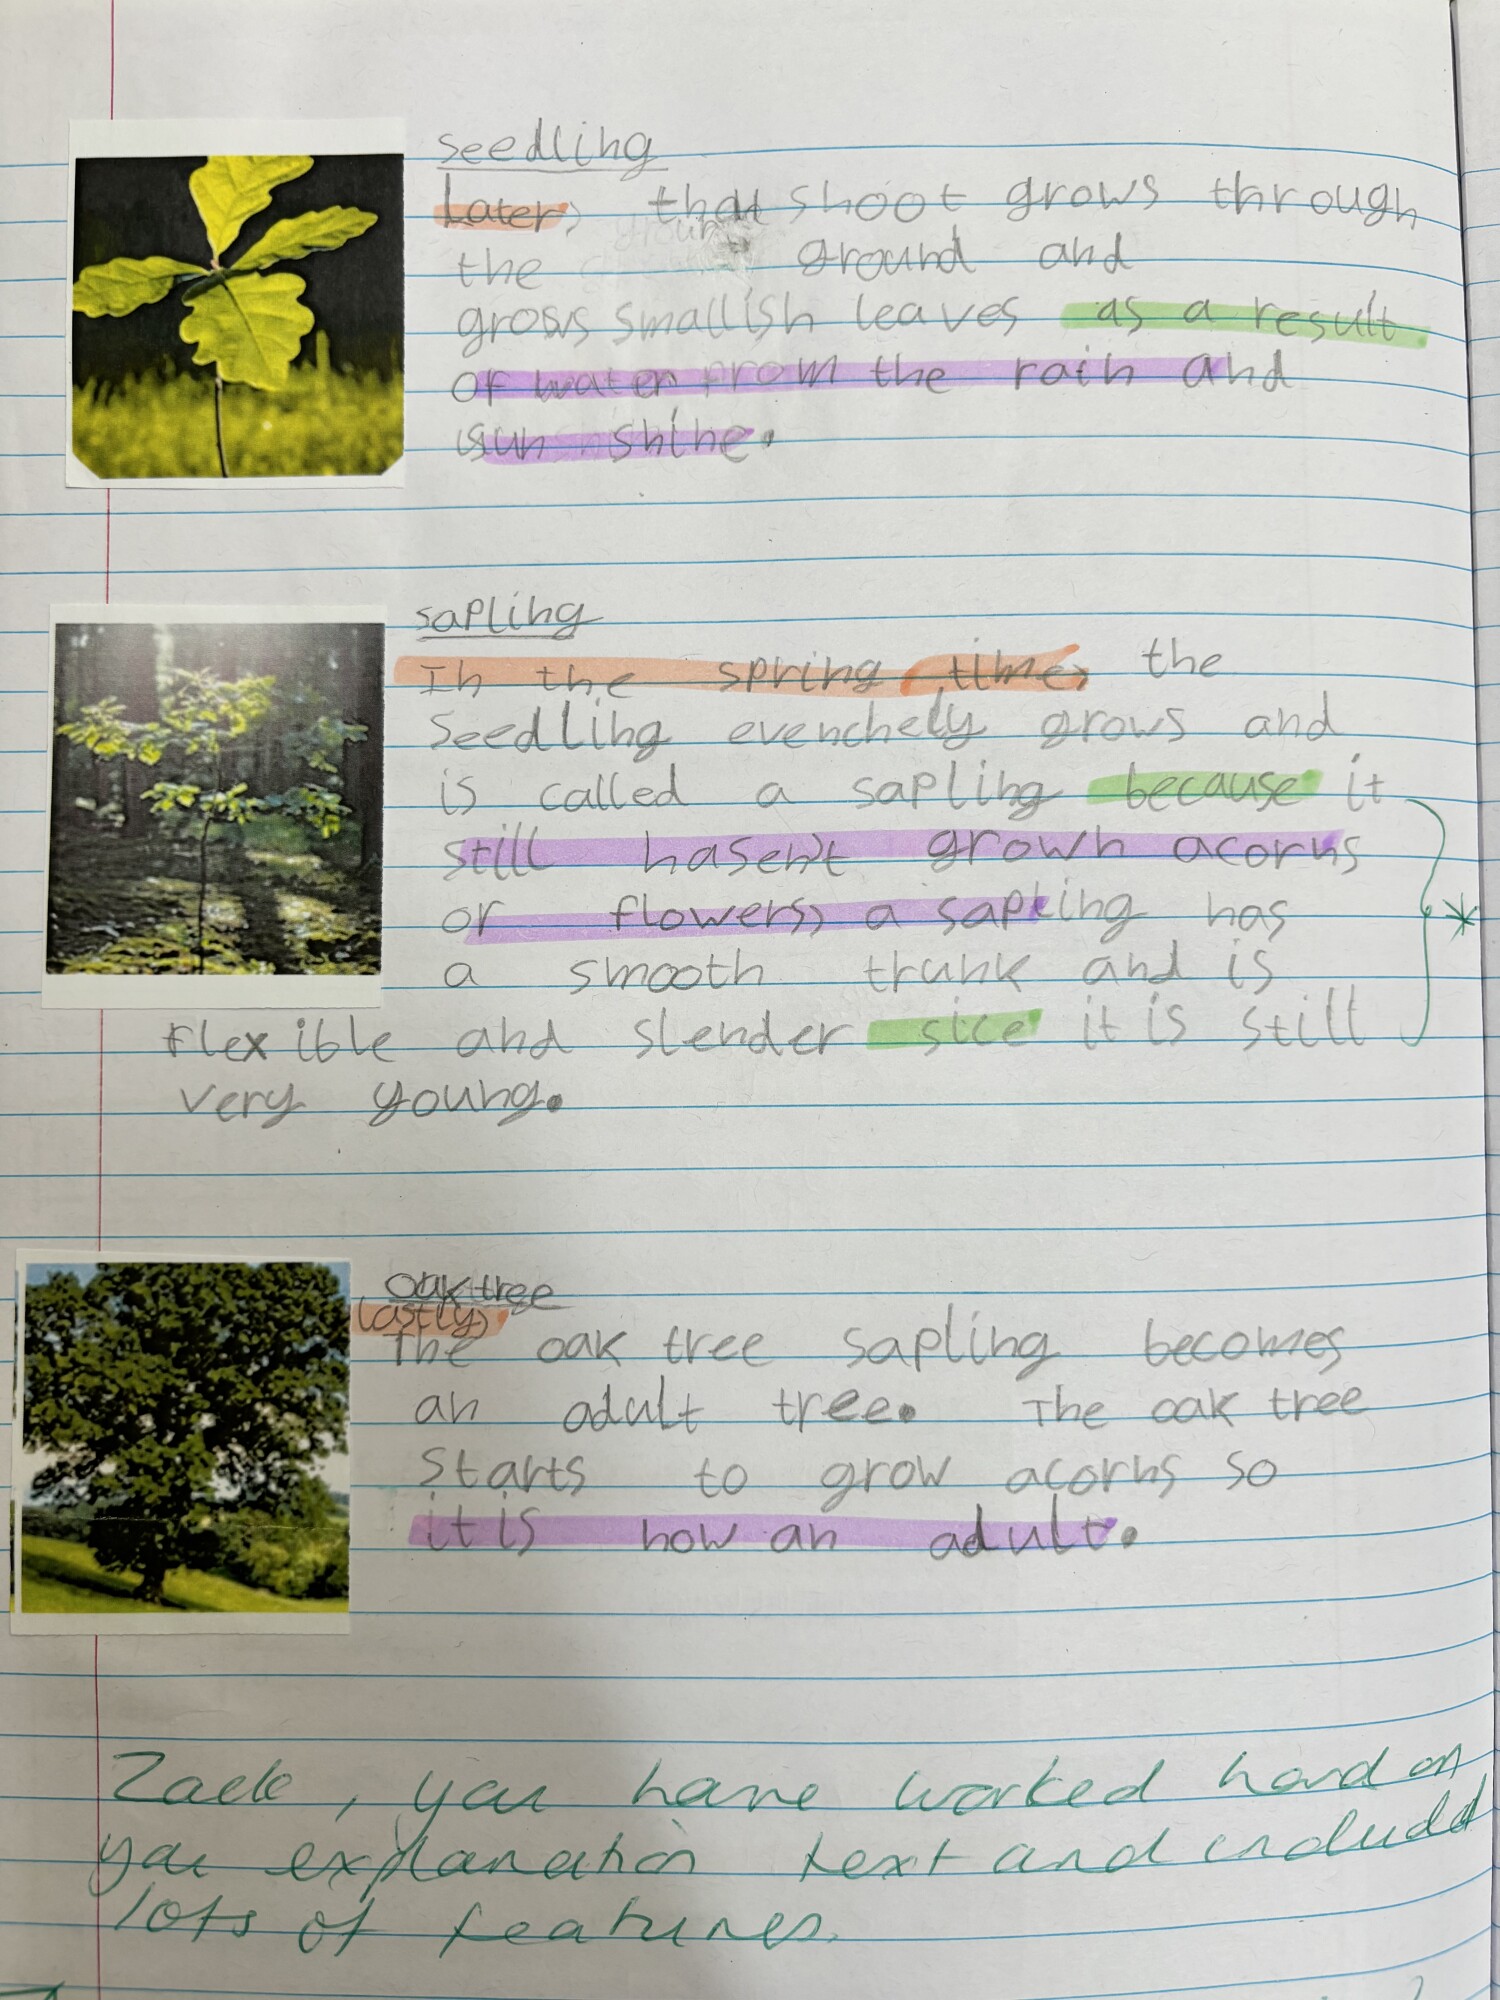 seedling
Later, that shoot grows through
the ground and
grows smallish leaves as a result
of water from the rain and
sun shine.
sapling
In the spring time, the
seedling evenchely grows and
is called a sapling because it
still hasen't grown acorns
or flowers, a sapling has
a smooth trunk and is
flexible and slender sice it is still
very young.
oak tree
lastly,
The oak tree sapling becomes
an adult tree. The oak tree
starts to grow acorns so
it is now an adult.
Zack, you have worked hard on
you explanation text and included
lots of features.